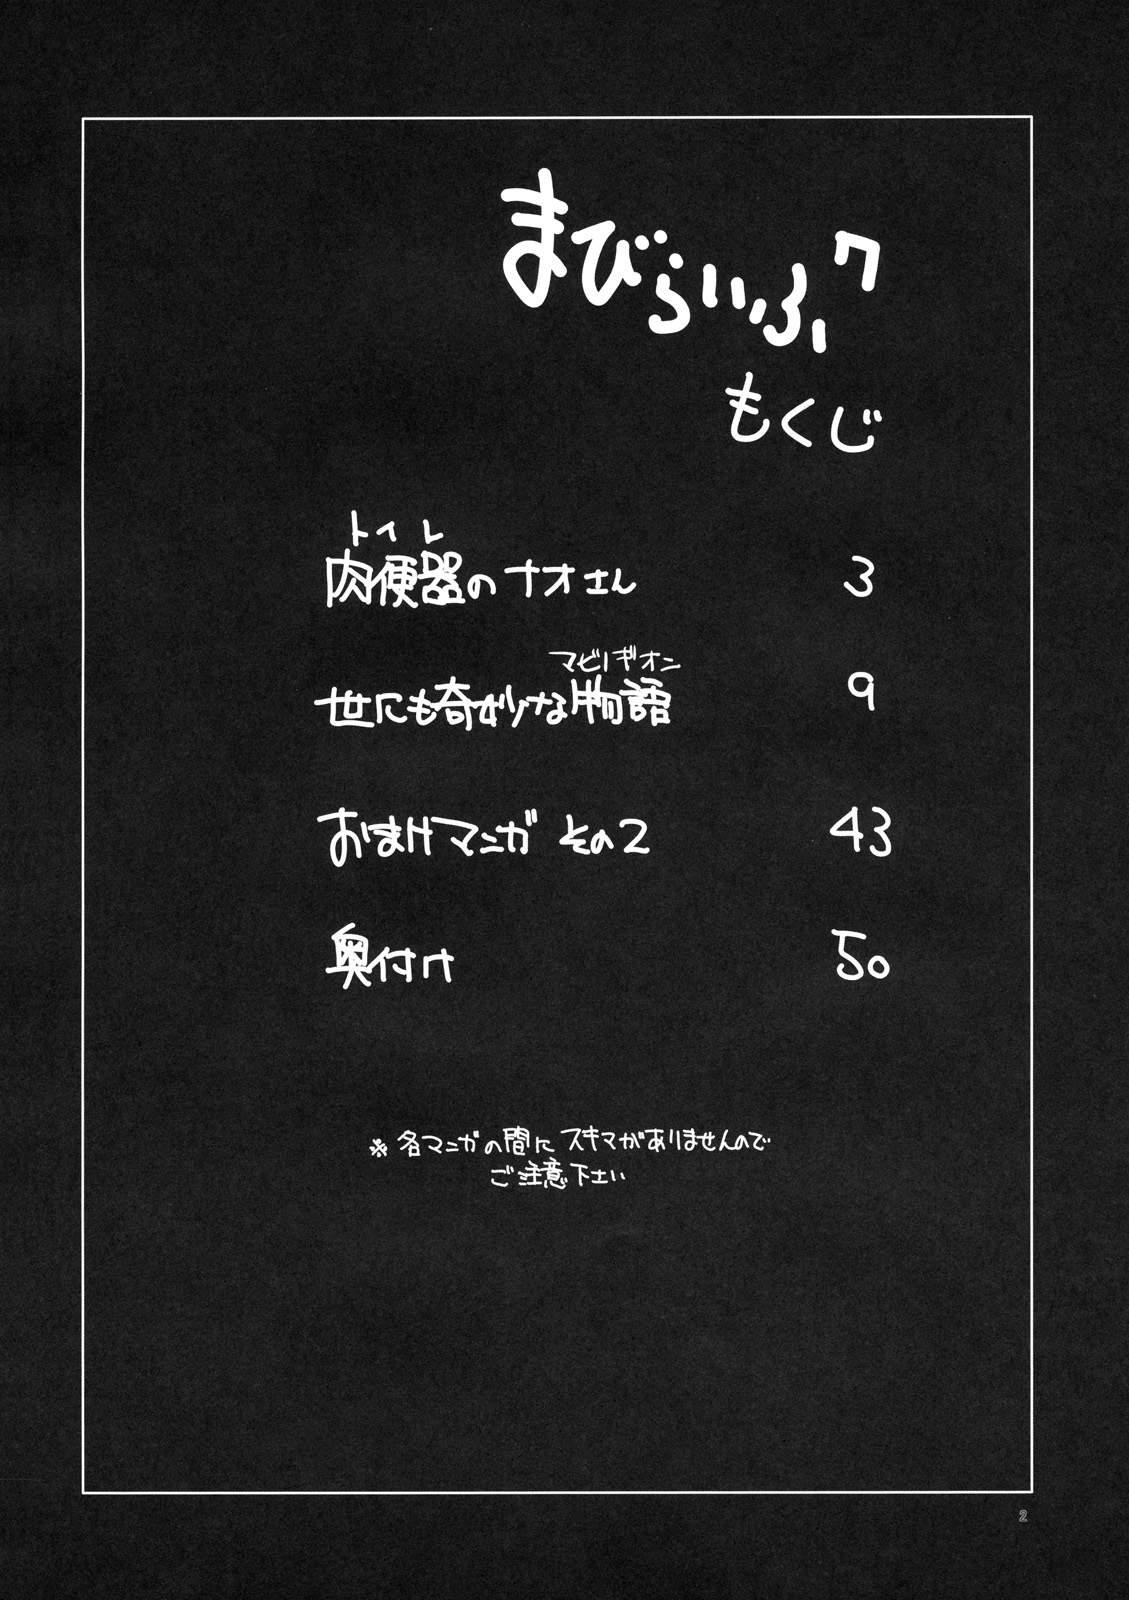 まびらいふ7
もくじ
トイレ
肉便器のナオさん 3
マビノギオン
世にも奇妙な物語 9
おまけマンガ その2 43
奥付け 50
※各マンガの間にスキマがありませんので
ご注意下さい
2